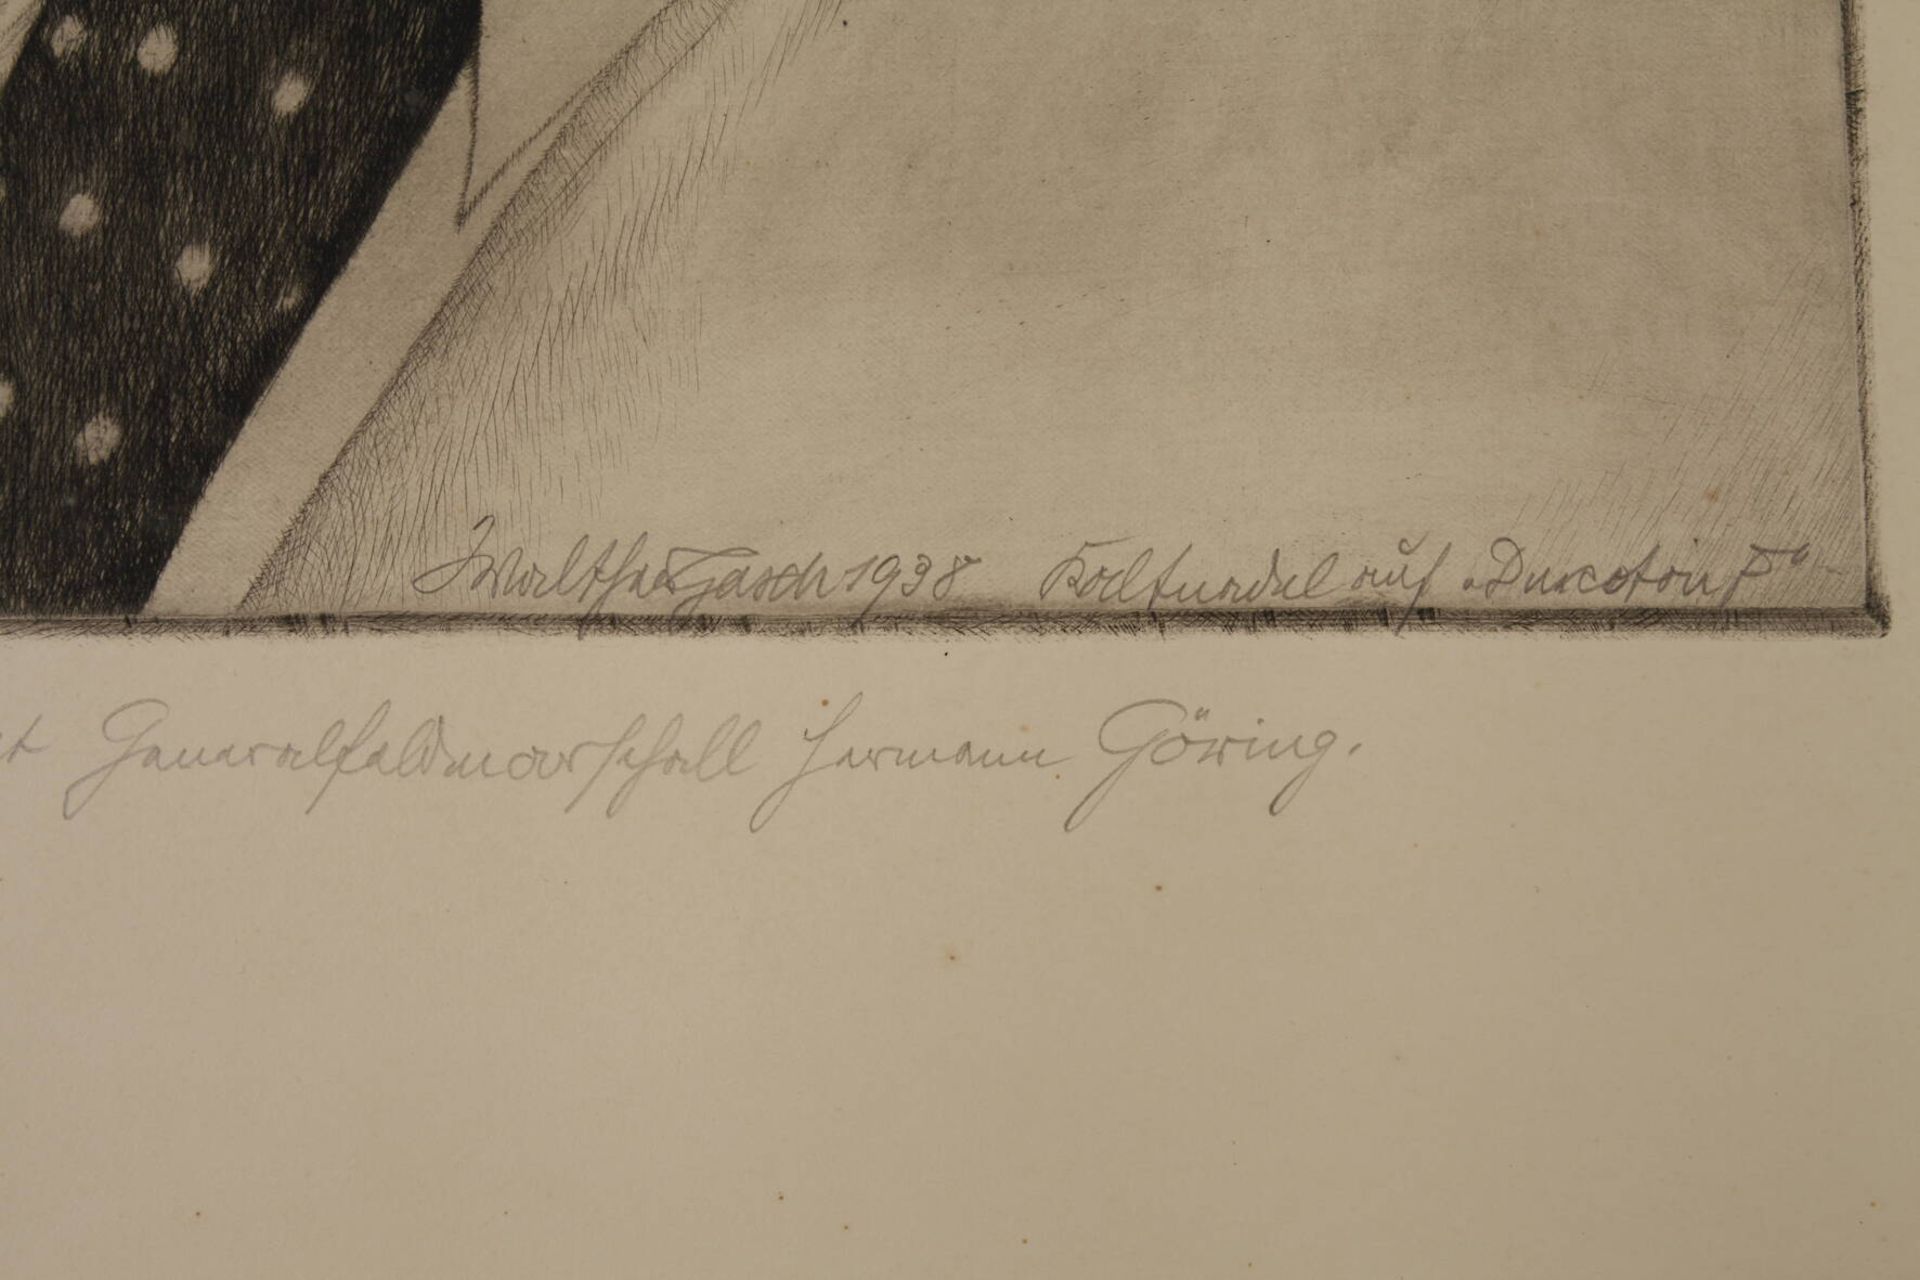 Walther Gasch 1938 Kaltnadel auf „Ducoton F“
Generalfeldmarschall Hermann Göring.